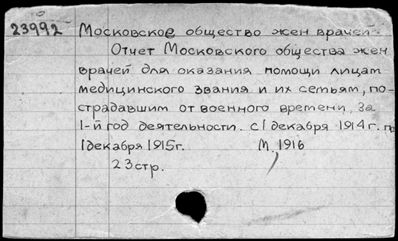 23992 Московское общество жен врачей
Отчет Московского общества жен
врачей для оказания помощи лицам
медицинского звания и их семьям, по-
страдавшим от военного времени. За
1-й год деятельности. С 1 декабря 1914 г. по
1 декабря 1915 г. М, 1916
23 стр.